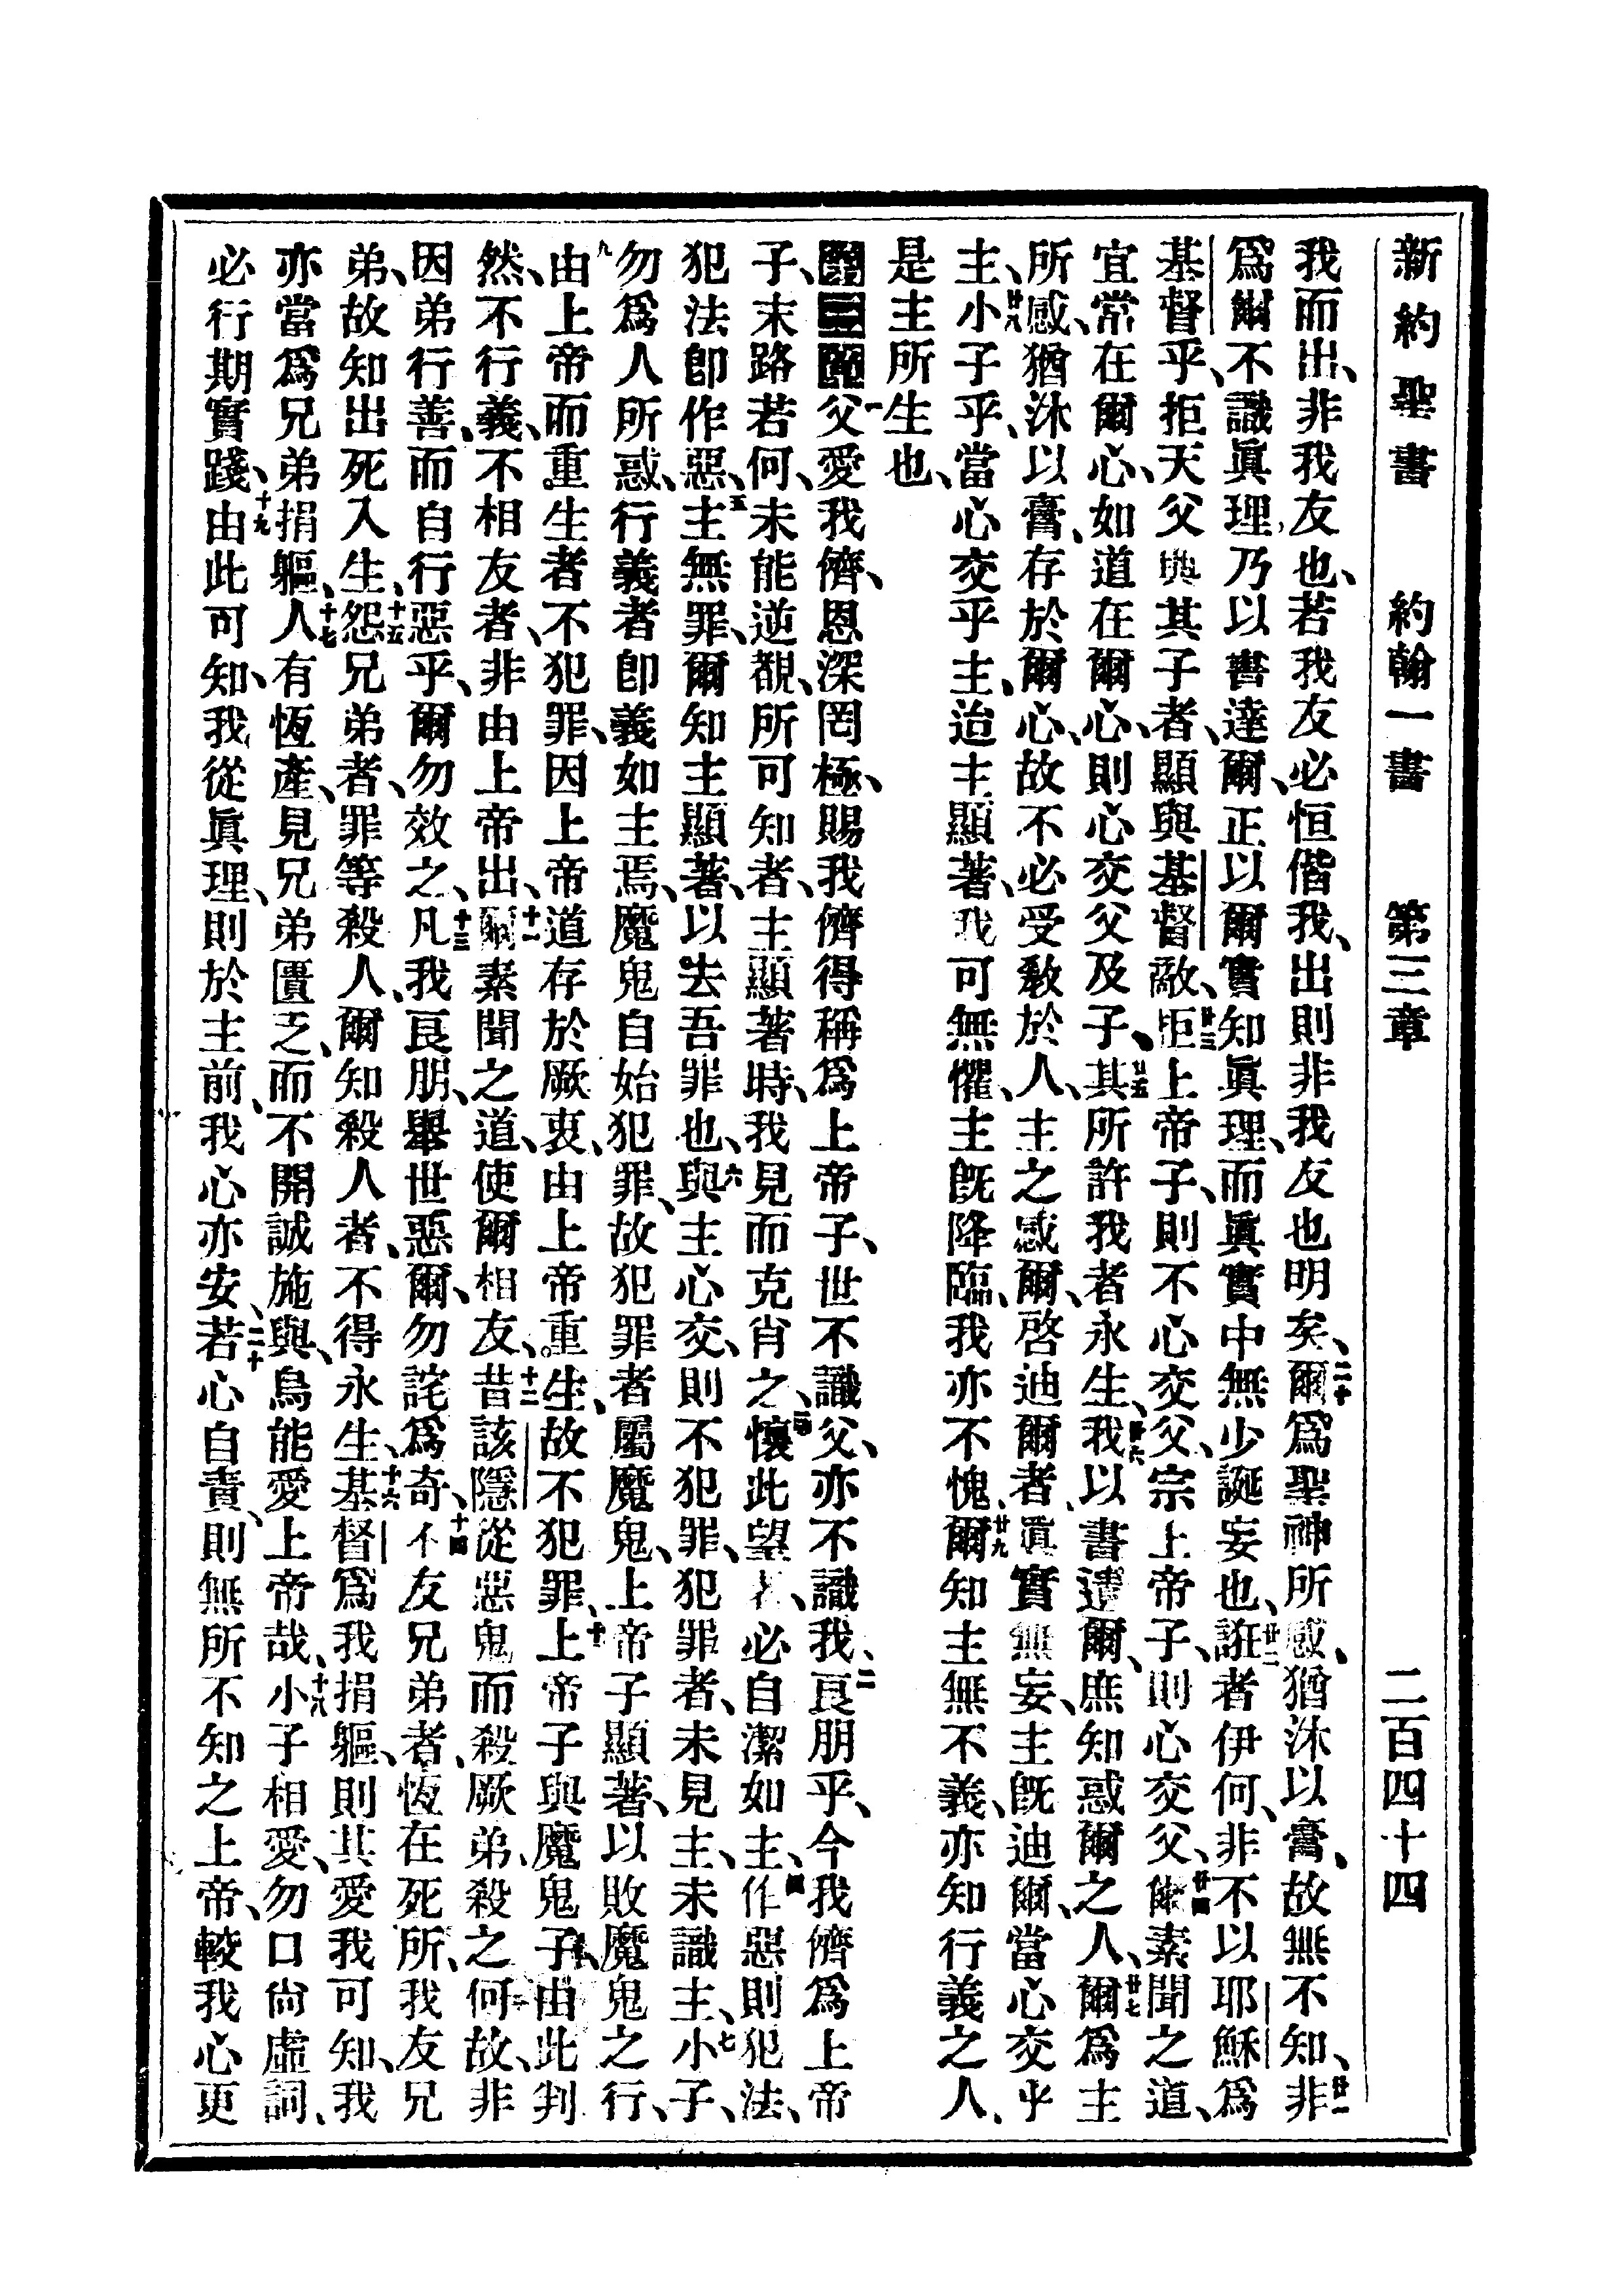 新約聖書　約翰一書　第三章　二百四十四
我而出、非我友也、若我友必恒偕我、出則非我友也明矣、二十爾爲聖神所感、猶沐以膏、故無不知、廿一非
爲爾不識眞理、乃以書達爾、正以爾實知眞理、而眞實中無少誕妄也、廿二誑者伊何、非不以耶穌爲
基督乎、拒天父與其子者、顯與基督敵、廿三拒上帝子、則不心交父、宗上帝子、則心交父、廿四爾素聞之道、
宜常在爾心、如道在爾心、則心交父及子、廿五其所許我者永生、廿六我以書達爾、庶知惑爾之人、廿七爾爲主
所感、猶沐以膏、存於爾心、故不必受敎於人、主之感爾、啓迪爾者、眞實無妄、主旣迪爾、當心交乎
主、廿八小子乎、當心交乎主、迨主顯著、我可無懼、主旣降臨、我亦不愧、廿九爾知主無不義、亦知行義之人、
是主所生也、
第三章一父愛我儕、恩深罔極、賜我儕得稱爲上帝子、世不識父、亦不識我、二良朋乎、今我儕爲上帝
子、末路若何、未能逆覩、所可知者、主顯著時、我見而克肖之、三懷此望者、必自潔如主、四作惡則犯法、
犯法卽作惡、五主無罪、爾知主顯著、以去吾罪也、六與主心交、則不犯罪、犯罪者、未見主、未識主、七小子、
勿爲人所惑、行義者卽義、如主焉、魔鬼自始犯罪、故犯罪者屬魔鬼、上帝子顯著、以敗魔鬼之行、
九由上帝而重生者、不犯罪、因上帝道存於厥衷、由上帝重生、故不犯罪、十上帝子與魔鬼子、由此判
然、不行義、不相友者、非由上帝出、十一爾素聞之道、使爾相友、十二昔該隱從惡鬼而殺厥弟、殺之何故、非
因弟行善、而自行惡乎、爾勿效之、十三凡我良朋、舉世惡爾、勿詫爲奇、十四不友兄弟者、恆在死所、我友兄
弟、故知出死入生、十五怨兄弟者、罪等殺人、爾知殺人者、不得永生、十六基督爲我捐軀、則其愛我可知、我
亦當爲兄弟捐軀、十七人有恆產、見兄弟匱乏、而不開誠施與、烏能愛上帝哉、十八小子相愛、勿口尙虛詞、
必行期實踐、十九由此可知、我從眞理、則於主前、我心亦安、二十若心自責、則無所不知之上帝、較我心更